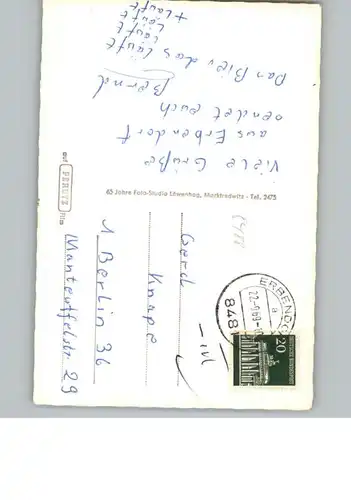 Viele Grüße
aus Erbendorf
sendet euch
Bernd
Das Bier das läuft
läuft
läuft
+ läuft
65 Jahre Foto-Studio Löwenhag, Marktredwitz - Tel. 2475
auf PERUTZ Film
Gerd
Knape
1 Berlin 36
Manteuffelstr. 29
ERBENDO
a
848
20
DEUTSCHE BUNDESPOST